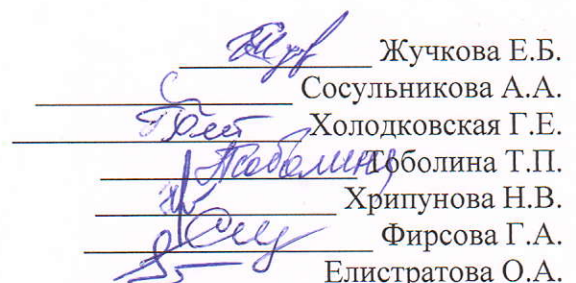 Жучкова Е.Б.
Сосульникова А.А.
Холодковская Г.Е.
Тоболина Т.П.
Хрипунова Н.В.
Фирсова Г.А.
Елистратова О.А.